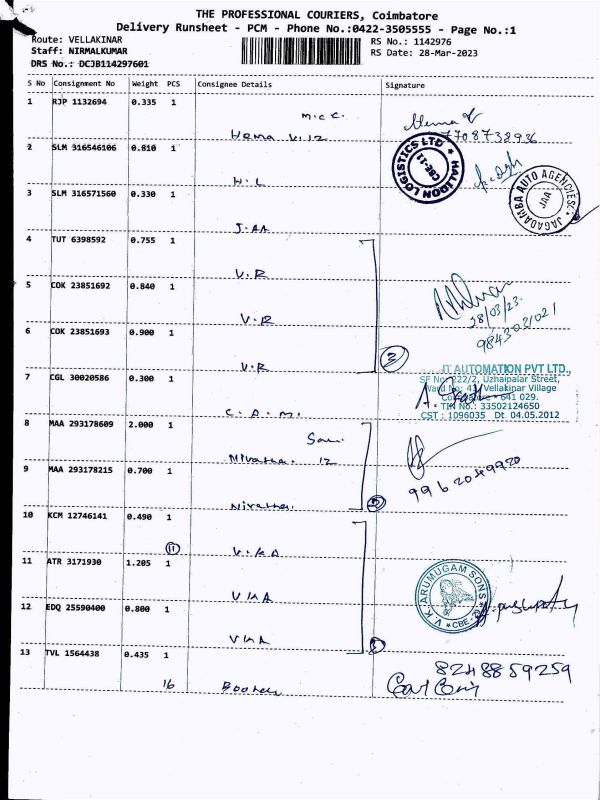 THE PROFESSIONAL COURIERS, Coimbatore
Delivery Runsheet - PCM - Phone No.:0422-3505555 - Page No.:1
Route: VELLAKINAR
RS No.: 1142976
Staff: NIRMALKUMAR
RS Date: 28-Mar-2023
DRS No.: DCJB114297601
S No Consignment No Weight PCS Consignee Details Signature
1 RJP 1132694 0.335 1
M.C.C.
Hema V. 12
Hema V
7708738936
2 SLM 316546106 0.810 1
H.L
HALIDON LOGISTICS LTD
CBE-12
3 SLM 316571560 0.330 1
J.AA
JAGADAMBA AUTO AGENCIES
JAA
4 TUT 6398592 0.755 1
V.R
5 COK 23851692 0.840 1
V.R
28/03/23.
984302021
6 COK 23851693 0.900 1
V.R
3
7 CGL 30020586 0.300 1
C.A.M.
JT AUTOMATION PVT LTD.,
SF No: 222/2, Uzhaipalar Street,
Ward No: 43, Vellakinar Village
Coimbatore - 641 029.
TIN No.: 33502124650
CST : 1096035 Dt. 04.05.2012
8 MAA 293178609 2.000 1
12
9 MAA 293178215 0.700 1
2
9962049920
10 KCM 12746141 0.490 1
11
V.KA
11 ATR 3171930 1.205 1
VKA
V.K. ARUMUGAM SONS
CBE-29
12 EDQ 25590400 0.800 1
VKA
3
13 TVL 1564438 0.435 1
16
8248859259